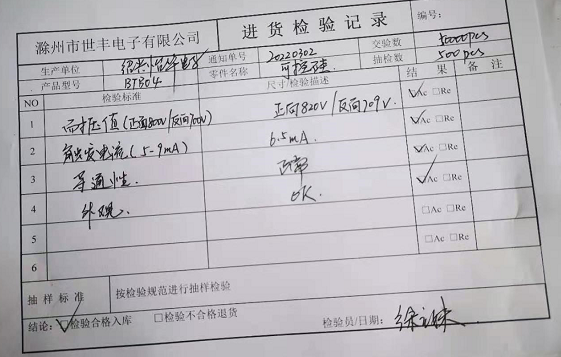 滁州市世丰电子有限公司 进货检验记录 编号:
生产单位 通知单号 20220302 交验数 5000pcs
产品型号 BT804 零件名称 可控硅 抽检数 500pcs
NO 检验标准 尺寸/检验描述 结果 备注
1 耐压值(正向800V/反向700V) 正向820V/反向709V. ☑Ac □Re
2 触发电流(5-9mA) 6.5mA ☑Ac □Re
3 导通性. 正常 ☑Ac □Re
4 外观. OK. ☑Ac □Re
5 □Ac □Re
6 □Ac □Re
抽样标准 按检验规范进行抽样检验
结论: ☑检验合格入库 □检验不合格退货 检验员/日期: